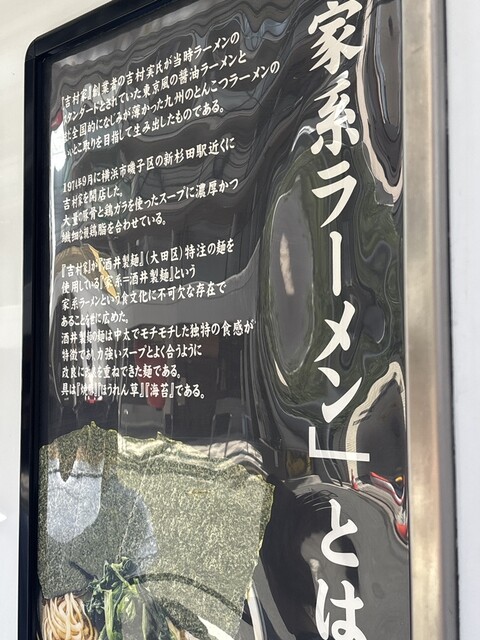 家系ラーメン」とは
『吉村家』創業者の吉村実氏が当時ラーメンの
スタンダードとされていた東京風の醤油ラーメンと
全国的になじみが薄かった九州のとんこつラーメンの
いいとこ取りを目指して生み出したものである。
1974年9月に横浜市磯子区の新杉田駅近くに
吉村家を開店した。
大量の豚骨と鶏ガラを使ったスープに濃厚かつ
繊細な鶏脂を合わせている。
『吉村家』が『酒井製麺』(大田区)特注の麺を
使用している『家系=酒井製麺』という
家系ラーメンという食文化に不可欠な存在で
あることを世に広めた。
酒井製麺の麺は中太でモチモチした独特の食感が
特徴であり、力強いスープとよく合うように
改良に改良を重ねてきた麺である。
具は『焼豚』『ほうれん草』『海苔』である。